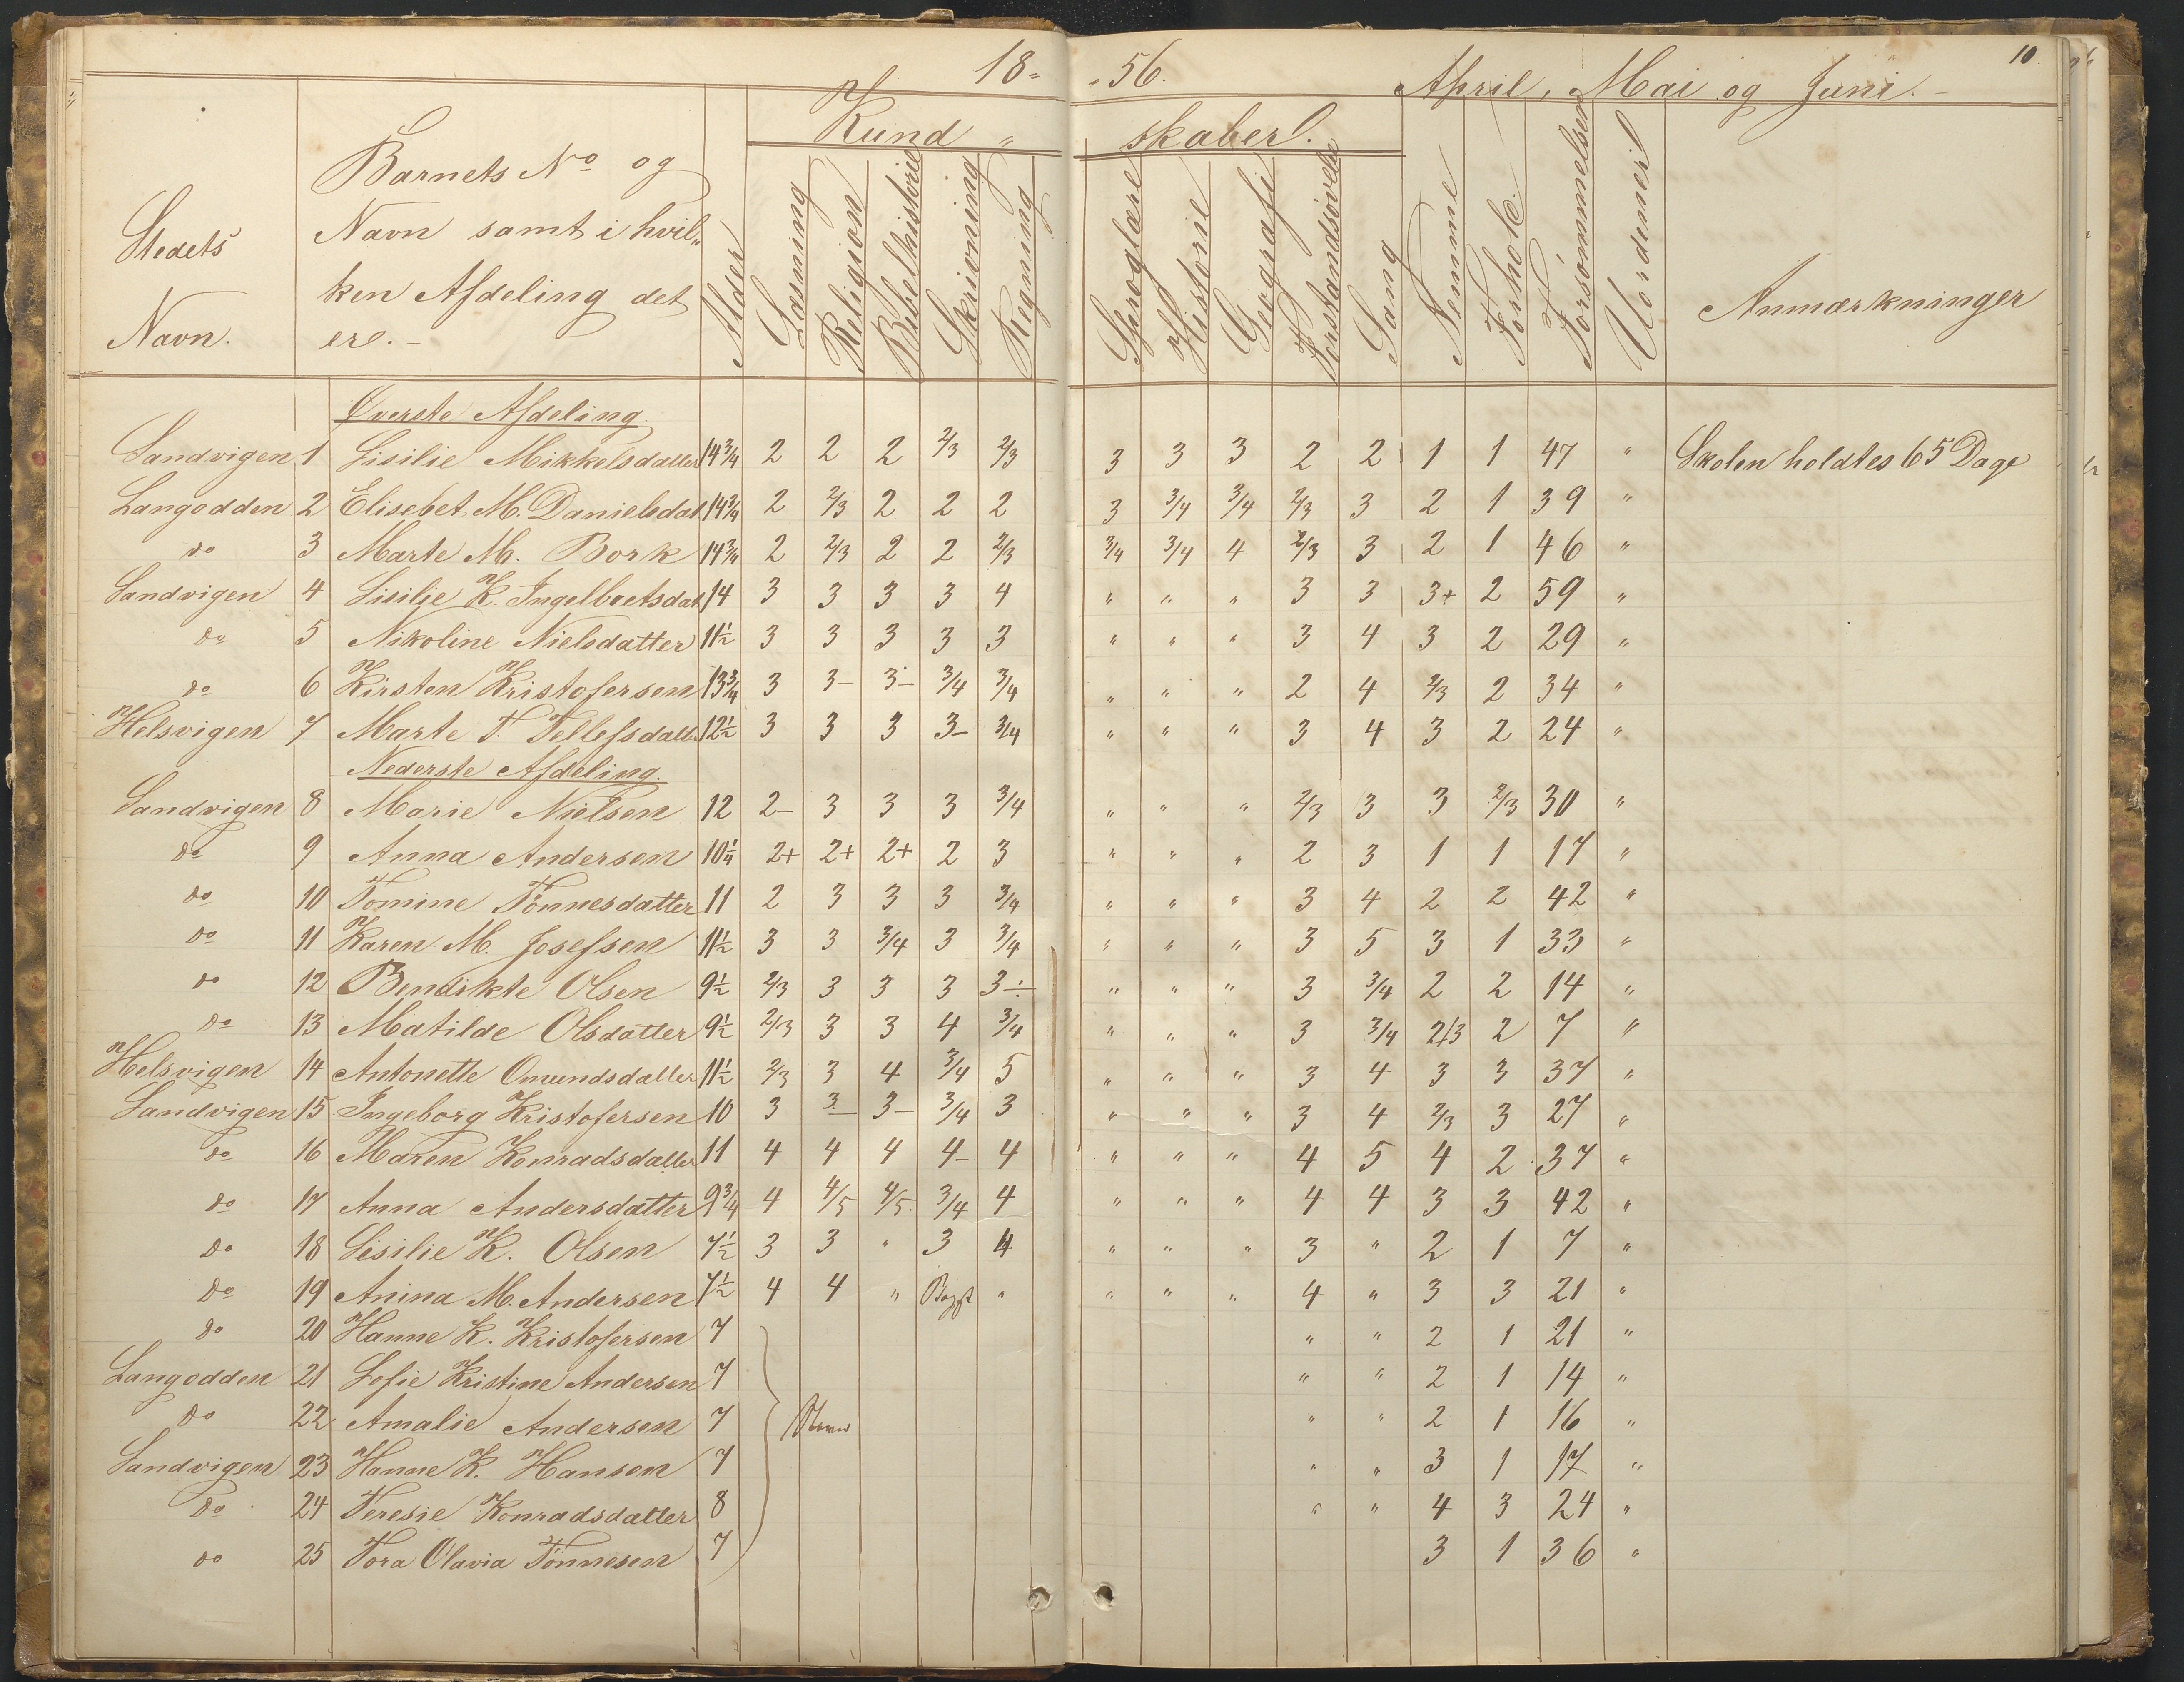 18 „ „ 56. April, Mai og Juni. 10
Kund „ skaber.
Stedets Navn. Barnets No og Navn samt i hvil„ ken Afdeling det er. Alder Læsning Religion Bibelhistorie Skrivning Regning Sproglære Historie Geografi Forstandsövelse Sang Nemme Forhold. Forsömmelser Uordener Anmærkninger
Øverste Afdeling.
Sandvigen 1 Sisilie Mikkelsdatter 14¾ 2 2 2 2/3 2/3 3 3 3 2 2 1 1 47 „ Skolen holdtes 65 Dage
Langodden 2 Elisebet M. Danielsdat 14¾ 2 2/3 2 2 2 3 3/4 3/4 2/3 3 2 1 39 „
do 3 Marte M. Bork 14¾ 2 2/3 2 2 2/3 3/4 3/4 4 2/3 3 2 1 46 „
Sandvigen 4 Sisilie K. Ingelbretsdat 14 3 3 3 3 4 „ „ „ 3 3 3+ 2 59 „
do 5 Nikoline Nielsdatter 11½ 3 3 3 3 3 „ „ „ 3 4 3 2 29 „
do 6 Kirsten Kristofersen 13¾ 3 3- 3- 3/4 3/4 „ „ „ 2 4 2/3 2 34 „
Helsvigen 7 Marte T. Tellefsdatter 12½ 3 3 3 3- 3/4 „ „ „ 3 4 3 2 24 „
Nederste Afdeling.
Sandvigen 8 Marie Nielsen 12 2- 3 3 3 3/4 „ „ „ 2/3 3 3 2/3 30 „
do 9 Anna Andersen 10¼ 2+ 2+ 2+ 2 3 „ „ „ 2 3 1 1 17 „
do 10 Tomine Tönnesdatter 11 2 3 3 3 3/4 „ „ „ 3 4 2 2 42 „
do 11 Karen M. Josefsen 11½ 3 3 3/4 3 3/4 „ „ „ 3 5 3 1 33 „
do 12 Bendikte Olsen 9½ 2/3 3 3 3 3÷ „ „ „ 3 3/4 2 2 14 „
do 13 Matilde Olsdatter 9½ 2/3 3 3 4 3/4 „ „ „ 3 3/4 2/3 2 7 „
Helsvigen 14 Antonette Omundsdatter 11½ 2/3 3 4 3/4 5 „ „ „ 3 4 3 3 37 „
Sandvigen 15 Ingeborg Kristofersen 10 3 3- 3- 3/4 3 „ „ „ 3 4 2/3 3 27 „
do 16 Maren Konradsdatter 11 4 4 4 4- 4 „ „ „ 4 5 4 2 37 „
do 17 Anna Andersdatter 9¾ 4 4/5 4/5 3/4 4 „ „ „ 4 4 3 3 42 „
do 18 Sisilie K. Olsen 7½ 3 3 „ 3 4 „ „ „ 3 „ 2 1 7 „
do 19 Anina M. Andersen 7½ 4 4 „ „ „ „ „ 4 „ 3 3 21 „
do 20 Hanne K. Kristofersen 7 „ „ 2 1 21 „
Langodden 21 Sofie Kristine Andersen 7 „ „ 2 1 14 „
do 22 Amalie Andersen 7 „ „ 2 1 16 „
Sandvigen 23 Hanne K. Hansen 7 „ „ 3 1 17 „
do 24 Teresie Konradsdatter 8 „ „ 4 3 24 „
do 25 Tora Olavia Tönnesen 7 3 1 36 „